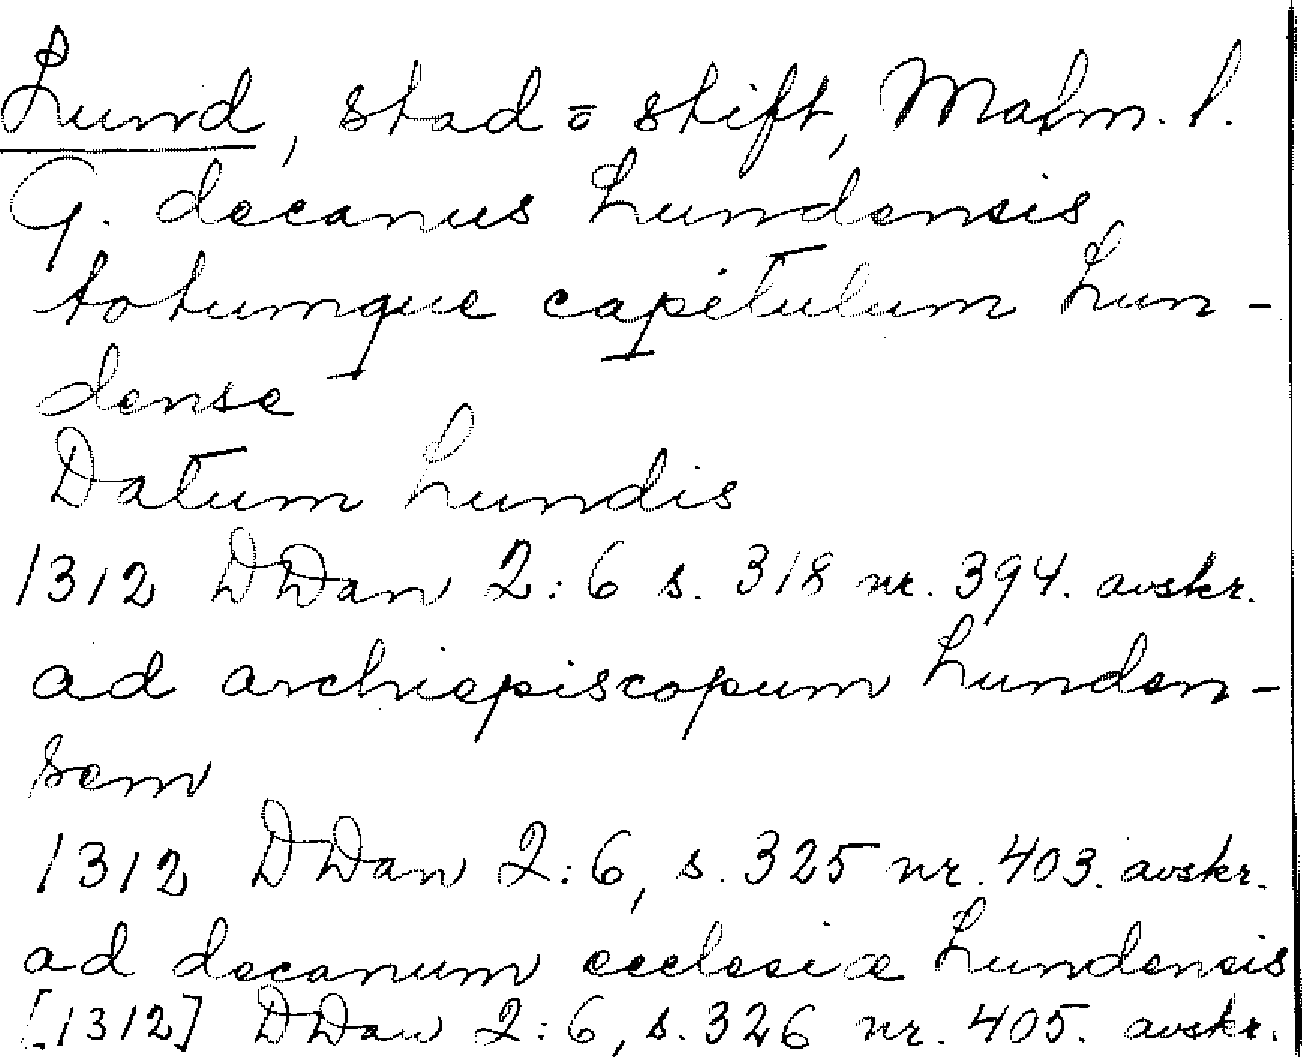 Lund, stad o stift, Malm. l.
G. decanus Lundensis
totumque capitulum Lun-
dense
Datum Lundis
1312 DDan 2:6 s. 318 nr. 394. avskr.
ad archiepiscopum Lunden-
sem
1312 DDan 2:6, s. 325 nr. 403. avskr.
ad decanum ecclesiæ Lundensis
[1312] DDan 2:6, s. 326 nr. 405. avskr.